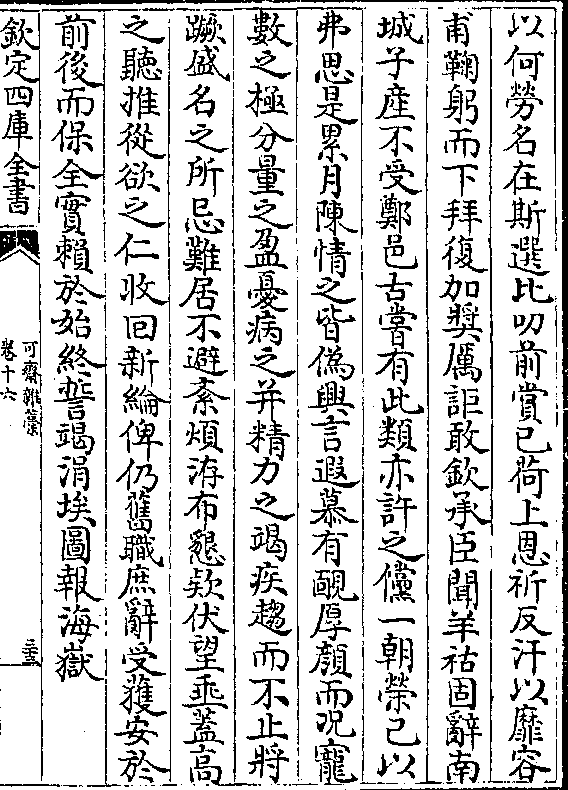 以何勞名在斯選比叨前賞已荷上恩祈反汗以靡容
甫鞠躬而下拜復加獎厲詎敢欽承臣聞羊祜固辭南
城子產不受鄭邑古嘗有此類亦許之儻一朝榮己以
弗思是累月陳情之皆偽興言遐慕有靦厚顔而况寵
數之極分量之盈憂病之并精力之竭疾趨而不止將
蹶盛名之所忌難居不避紊煩洊布懇欵伏望垂蓋高
之聽推從欲之仁收回新綸俾仍舊職庶辭受獲安於
前後而保全實賴於始終誓竭涓埃圖報海嶽
欽定四庫全書
可齋雜藁
卷十六
三十三